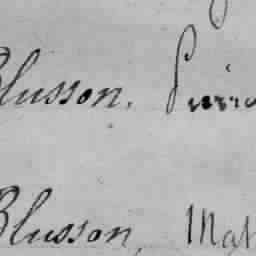 Blusson. Pierre
Blusson, Mat